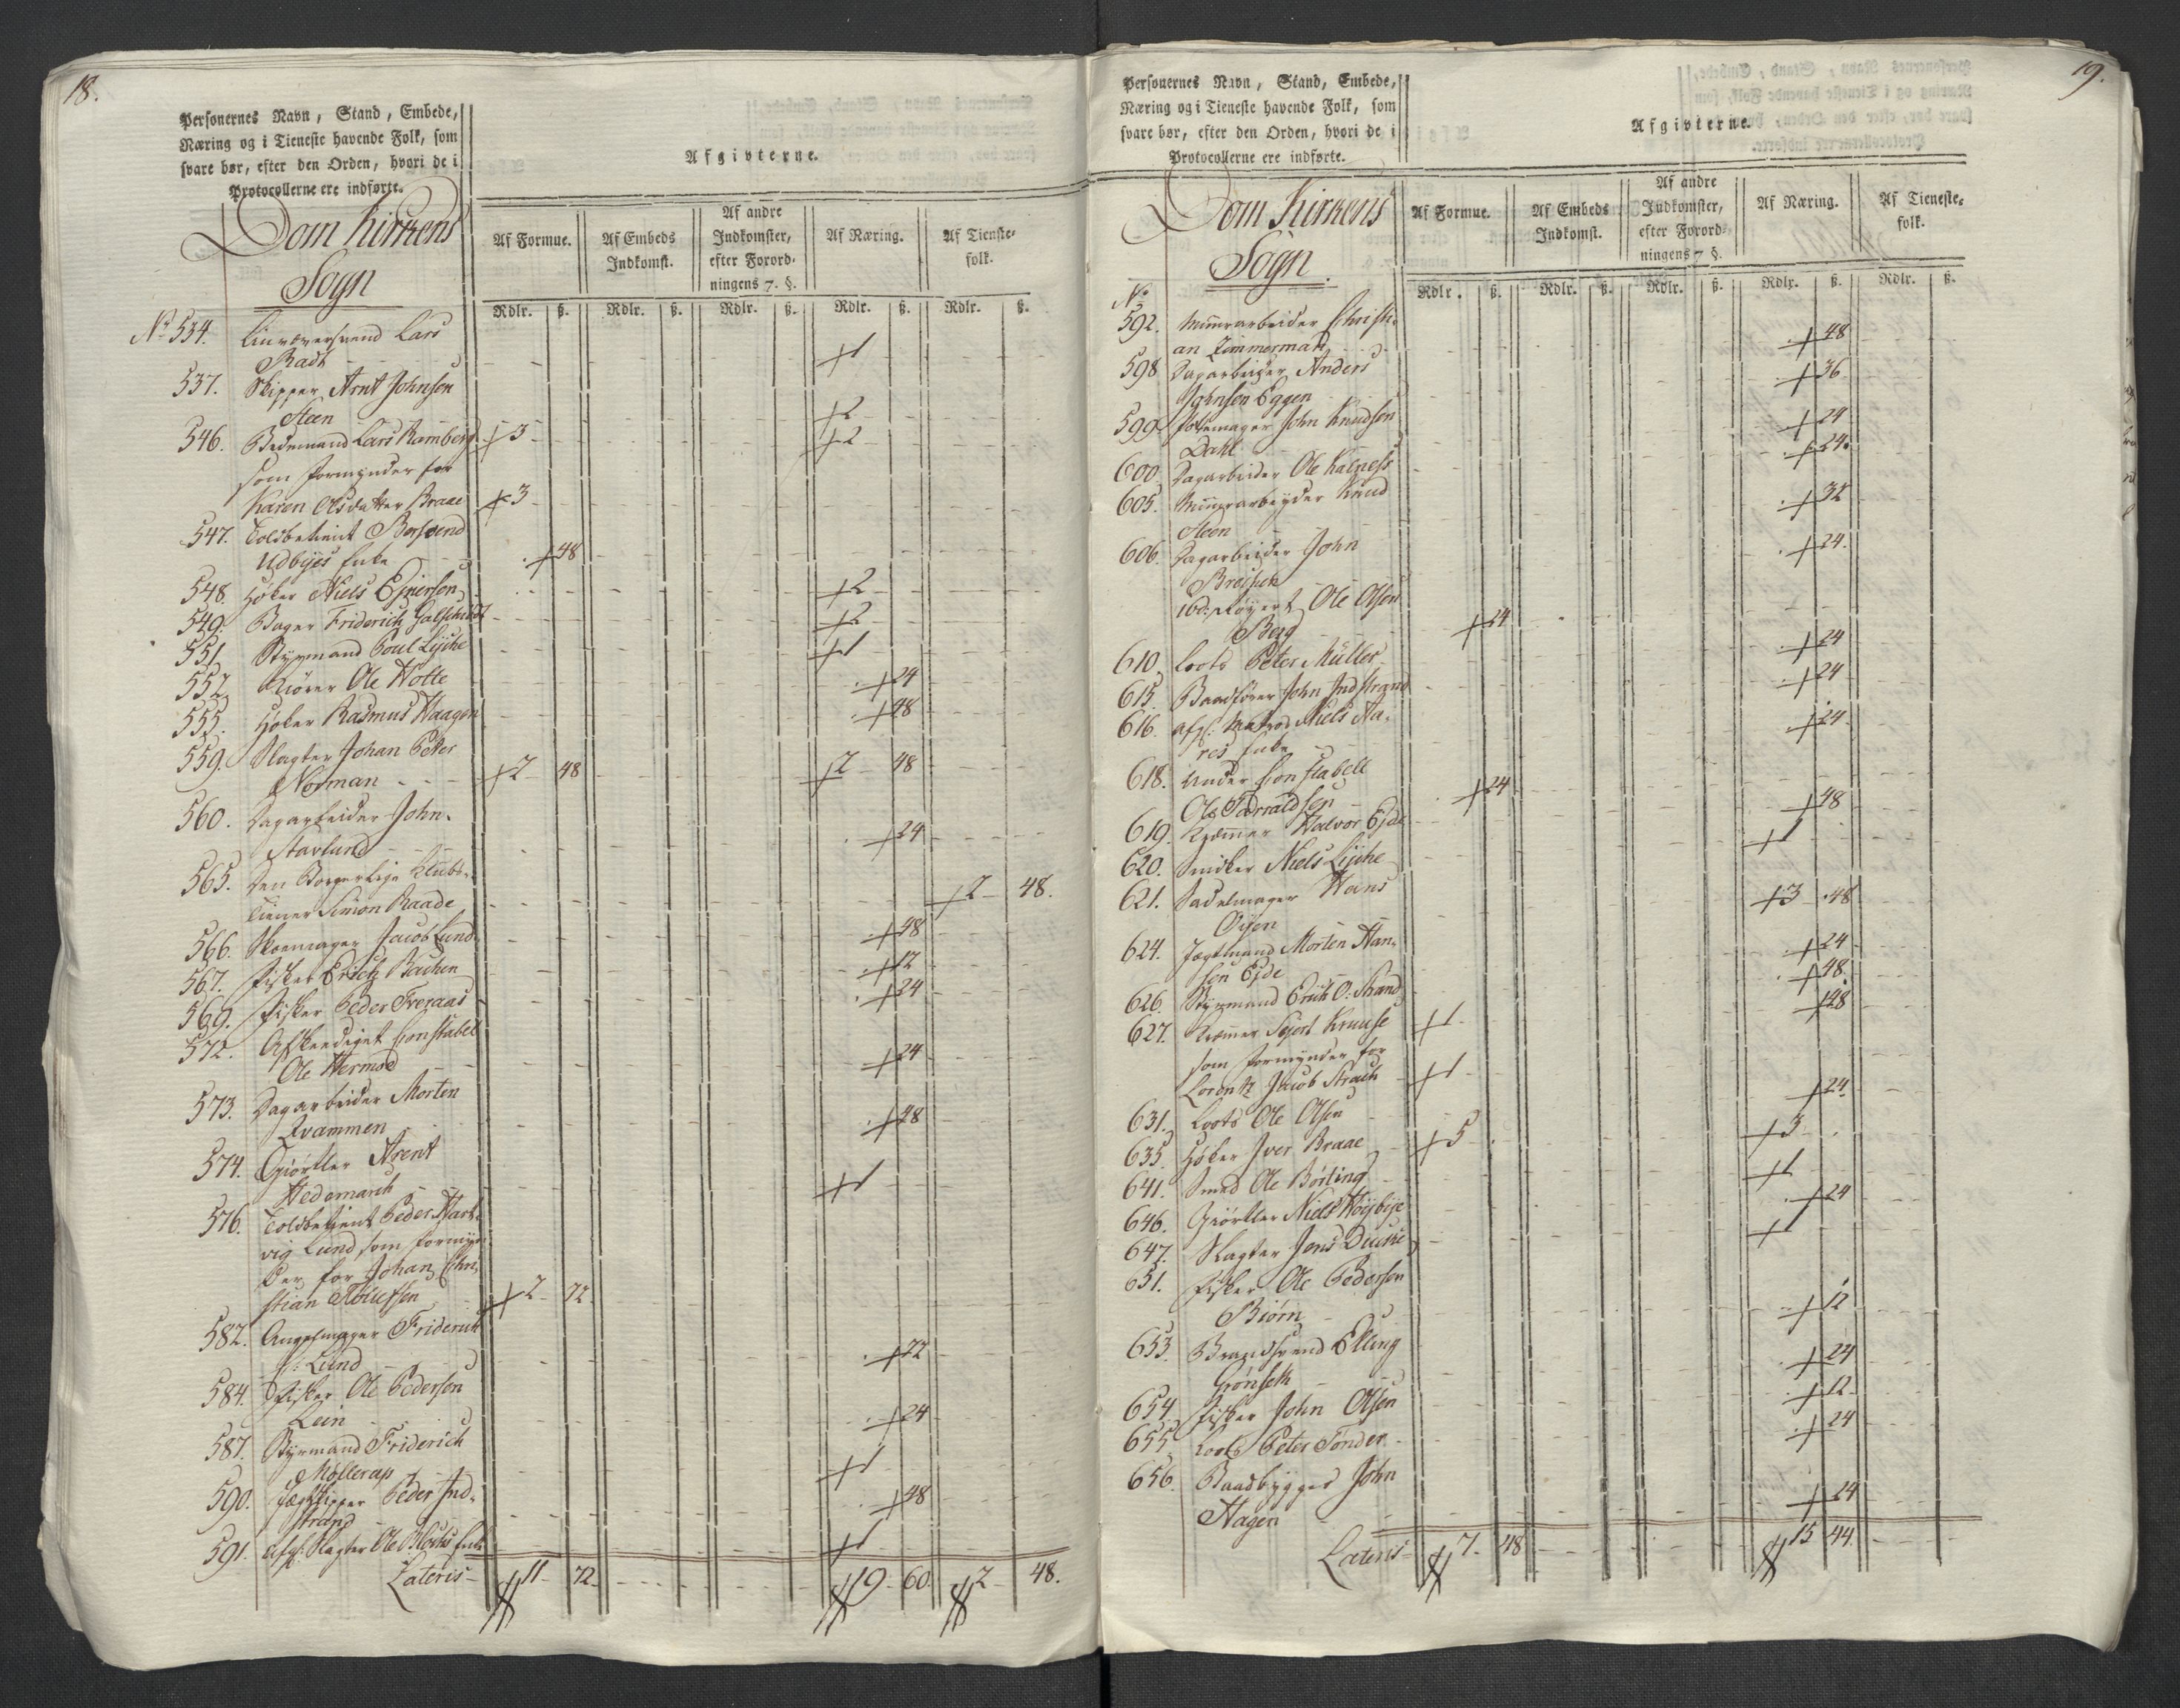 18.
Personernes Navn, Stand, Embede,
Næring og i Tieneste havende Folk, som
svare bør, efter den Orden, hvori de i
Protocollerne ere indførte.
Afgivterne.
Dom Kirkens
Sogn
Af Formue.
Af Embeds
Indkomst.
Af andre
Indkomster,
efter Forord-
ningens 7. §.
Af Næring.
Af Tieneste-
folk.
Rdlr. ß. Rdlr. ß. Rdlr. ß. Rdlr. ß. Rdlr. ß.
No 534. Linvæversvend Lars
Radt 1
537. Skipper Arnt Johnsen
Steen 2
546. Bedemand Lars Ramberg 3 2
som Formynder for
Karen Olsdatter Braae 3
547. Toldbetient Bersvend
Udbyes Enke 48
548. Høker Niels Ejnersen 2
549. Bager Friderich Galschiødt 2
551. Styrmand Poul Lyche 1
552. Kiører Ole Wotte 24
555. Høker Rasmus Haagen 48
559. Slagter Johan Peter
Norman 2 48 2 48
560. Dagarbeider John
Stavlund 24
565. Den Borgerlige Klubs
Tiener Simon Raade 2 48.
566. Skoemager Jacob Lund 48
567. Fisker Erich Bachen 12
569. Fisker Peder Treraas 24
572. Afskediget Constabel
Ole Hermod 24
573. Dagarbeider Morten
Qvammen 48
574. Giørtler Arent
Hedemarch 1
576. Toldbetjent Peder Hart-
vig Lund som Formyn-
der for Johan Chri-
stian 2 72
582. Friderich
Lund 72
584. Fisker Ole Pedersen
Lein 24
587. Styrmand Friderich
Møllerap 1
590. Jægtskipper Peder Ind-
strand 48
591. Afg: Slagter Ole Blochs Enke 1
Lateris 11 72 19 60 2 48.
19.
Personernes Navn, Stand, Embede,
Næring og i Tieneste havende Folk, som
svare bør, efter den Orden, hvori de i
Protocollerne ere indførte.
Afgivterne.
Dom Kirkens
Sogn.
Af Formue.
Af Embeds
Indkomst.
Af andre
Indkomster,
efter Forord-
ningens 7 §.
Af Næring.
Af Tieneste-
folk.
Rdlr. ß. Rdlr. ß. Rdlr. ß. Rdlr. ß. Rdlr. ß.
No
592. Muurarbeider Christi-
an Zimmerman 48
598 Dagarbeider Anders
Johnsen Eggen 36
599 John Knudsen
Dahl 24
600. Dagarbeider Ole Kalness 24
605. Muurarbeyder Knud
Steen 32
606. Dagarbeider John
24.
Ole Olsen
Berg 24
610. Loots Peter Müller 24
615. Baadfører John Indstrand 24
616. Afg: Matros Niels Aa-
res Enke 24
618. Under Constabell
Ole Torraldsen 24
619. Kræmer Halvor Ejde 48
620. Snidker Niels Lyche 1
621. Sadelmager Hans
Oyen 3 48
624. Jægtmand Morten Han-
sen Ejde 24
626. Styrmand Erich O: Strand 48
627. Kræmer Sejert Kruuse 1 48
som Formynder for
Lorentz Jacob Strach 1
631. Loots Ole Olsen 24
635. Høker Iver Braae 5 3
641. Smed Ole Børling 1
646. Giørtler Niels Høybye 24
647. Slagter Jens Ducke 1
651. Fisker Ole Pedersen
Biørn 12
653. Brandsvend Elling
Grønseth 24
654. Fisker John Olsen 12
655. Loots Peter Tønder 24
656. Baadbygger John
Hagen 24
Lateris 7. 48 15 44